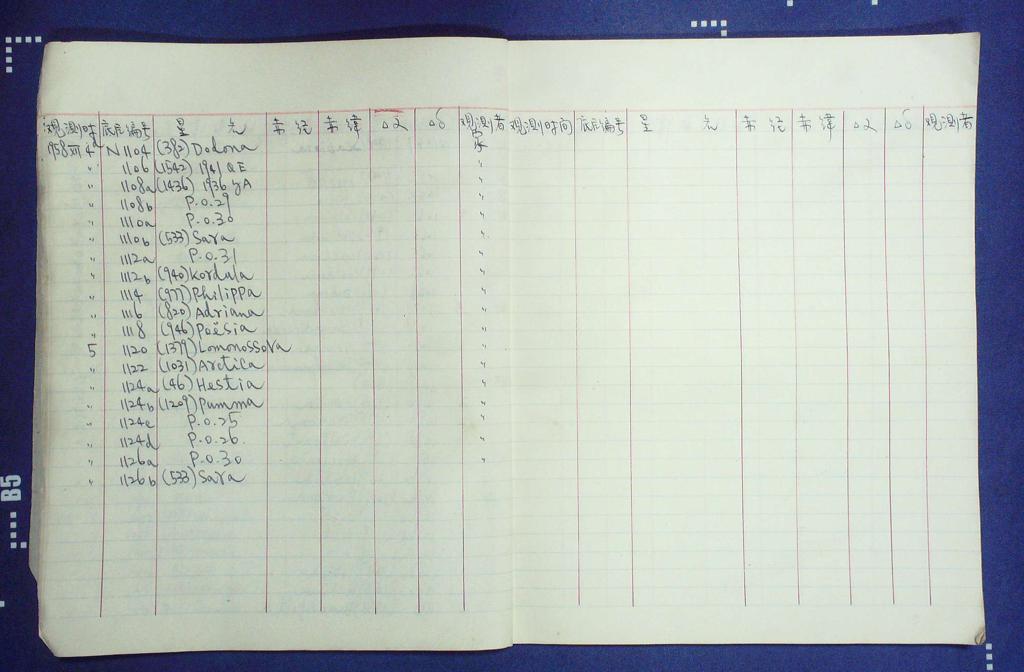 观测时 底片编号 星名 赤经 赤纬 Δα Δδ 观测者 观测时间 底片编号 星名 赤经 赤纬 Δα Δδ 观测者
1958 XII 4d N1104 (382) Dodona
" 1106 (1542) 1941 QE "
" 1108a (1436) 1936 YA "
" 1108b P.O.29 "
" 1110a P.O.30 "
" 1110b (533) Sara "
" 1112a P.O.31 "
" 1112b (940) Kordula "
" 1114 (977) Philippa "
" 1116 (820) Adriana "
" 1118 (946) Poësia "
5 1120 (1379) Lomonossova "
" 1122 (1031) Arctica "
" 1124a (46) Hestia "
" 1124b (1209) Pumma "
" 1124c P.O.25 "
" 1124d P.O.26. "
" 1126a P.O.30 "
" 1126b (533) Sara
B5